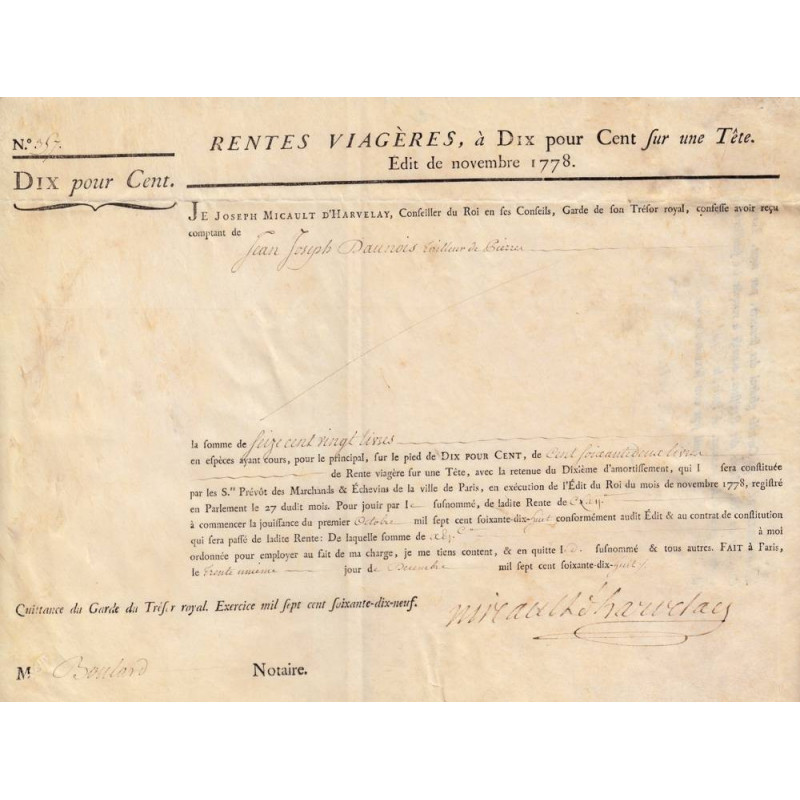 N.º 357.
RENTES VIAGÈRES, à DIX pour Cent ſur une Tête.
Edit de novembre 1778.
DIX pour Cent.
JE JOSEPH MICAULT D'HARVELAY, Conſeiller du Roi en ſes Conſeils, Garde de ſon Tréſor royal, confeſſe avoir reçu
comptant de Jean Joseph Daunois tailleur de Pierres
la ſomme de Seize cent vingt livres
en eſpèces ayant cours, pour le principal, ſur le pied de DIX POUR CENT, de Cent soixante deux livres
de Rente viagère ſur une Tête, avec la retenue du Dixième d'amortiſſement, qui l ſera conſtituée
par les S.rs Prévôt des Marchands & Échevins de la ville de Paris, en exécution de l'Édit du Roi du mois de novembre 1778, regiſtré
en Parlement le 27 dudit mois. Pour jouir par le ſuſnommé, de ladite Rente de
à commencer la jouiſſance du premier Octobre mil ſept cent ſoixante-dix-huit conformément audit Édit & au contrat de conſtitution
qui ſera paſſé de ladite Rente: De laquelle ſomme de à moi
ordonnée pour employer au fait de ma charge, je me tiens content, & en quitte l d. ſuſnommé & tous autres. FAIT à Paris,
le trente unieme jour de Decembre mil ſept cent ſoixante-dix-huit
Quittance du Garde du Tréſor royal. Exercice mil ſept cent ſoixante-dix-neuf.
micault d'harvelay
M.e Boulard Notaire.